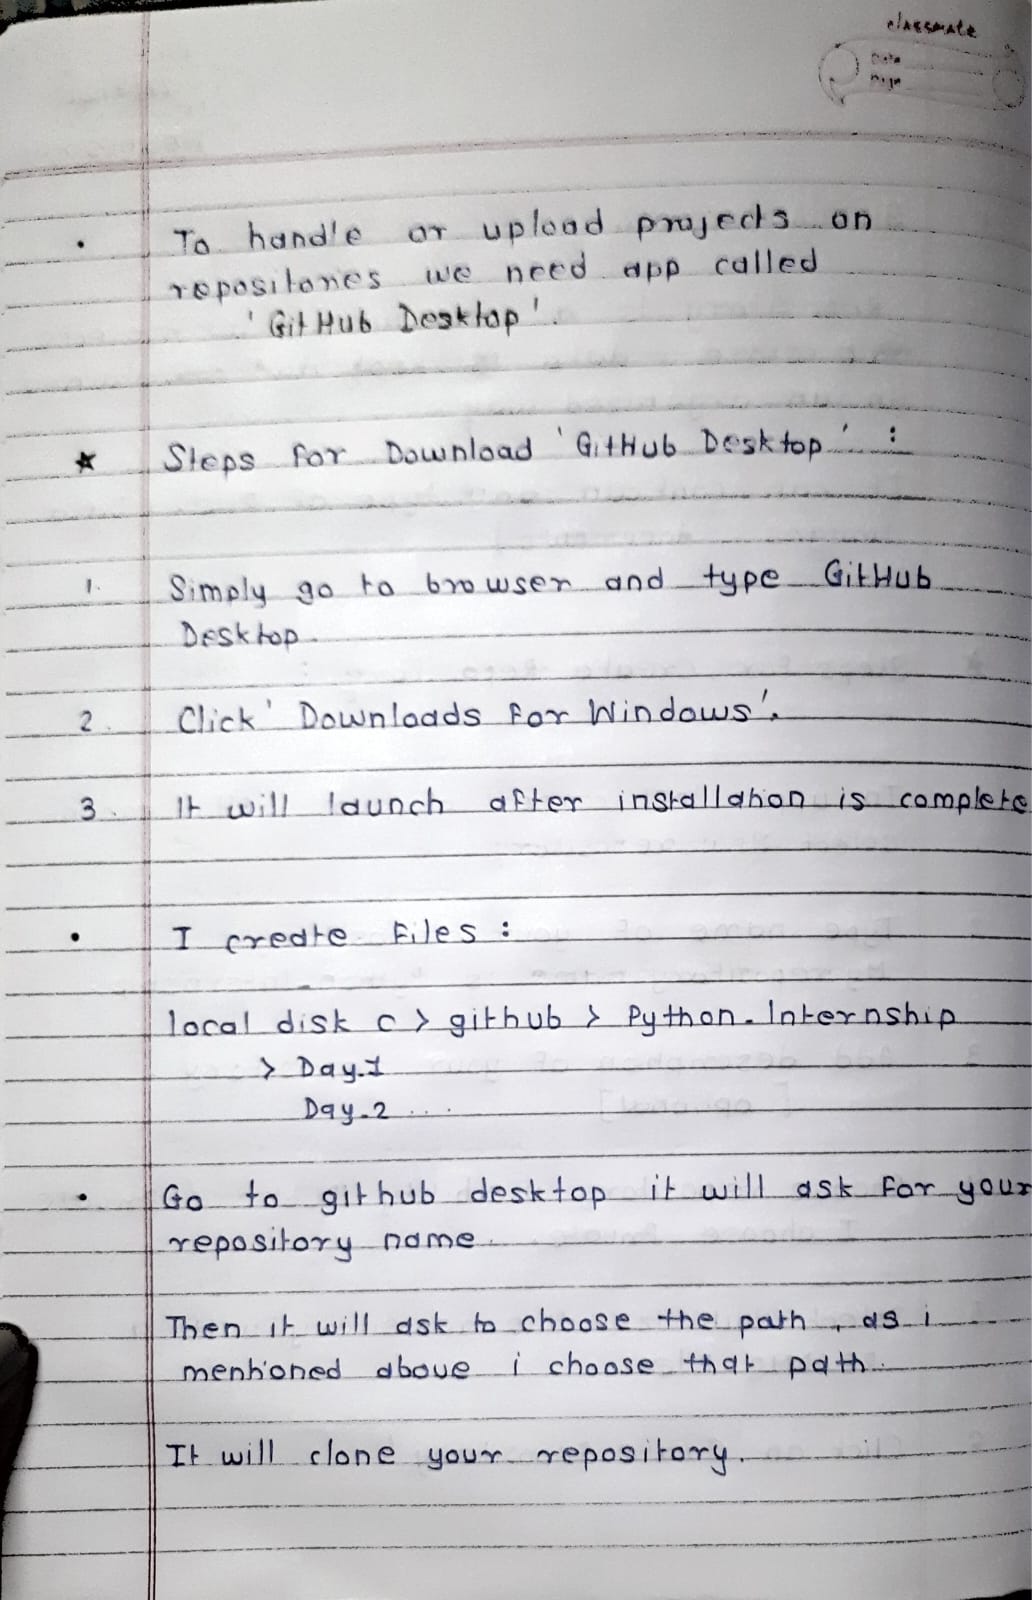 classmate
Date
Page
• To handle or upload projects on
repositories we need app called
'GitHub Desktop'.
★ Steps for Download 'GitHub Desktop' :
1. Simply go to browser and type GitHub
Desktop.
2. Click 'Downloads for Windows'.
3. It will launch after installation is complete
• I create files :
local disk c > github > Python_Internship
> Day_1
Day_2 ....
• Go to github desktop it will ask for your
repository name.
Then it will ask to choose the path, as i
mentioned above i choose that path.
It will clone your repository.